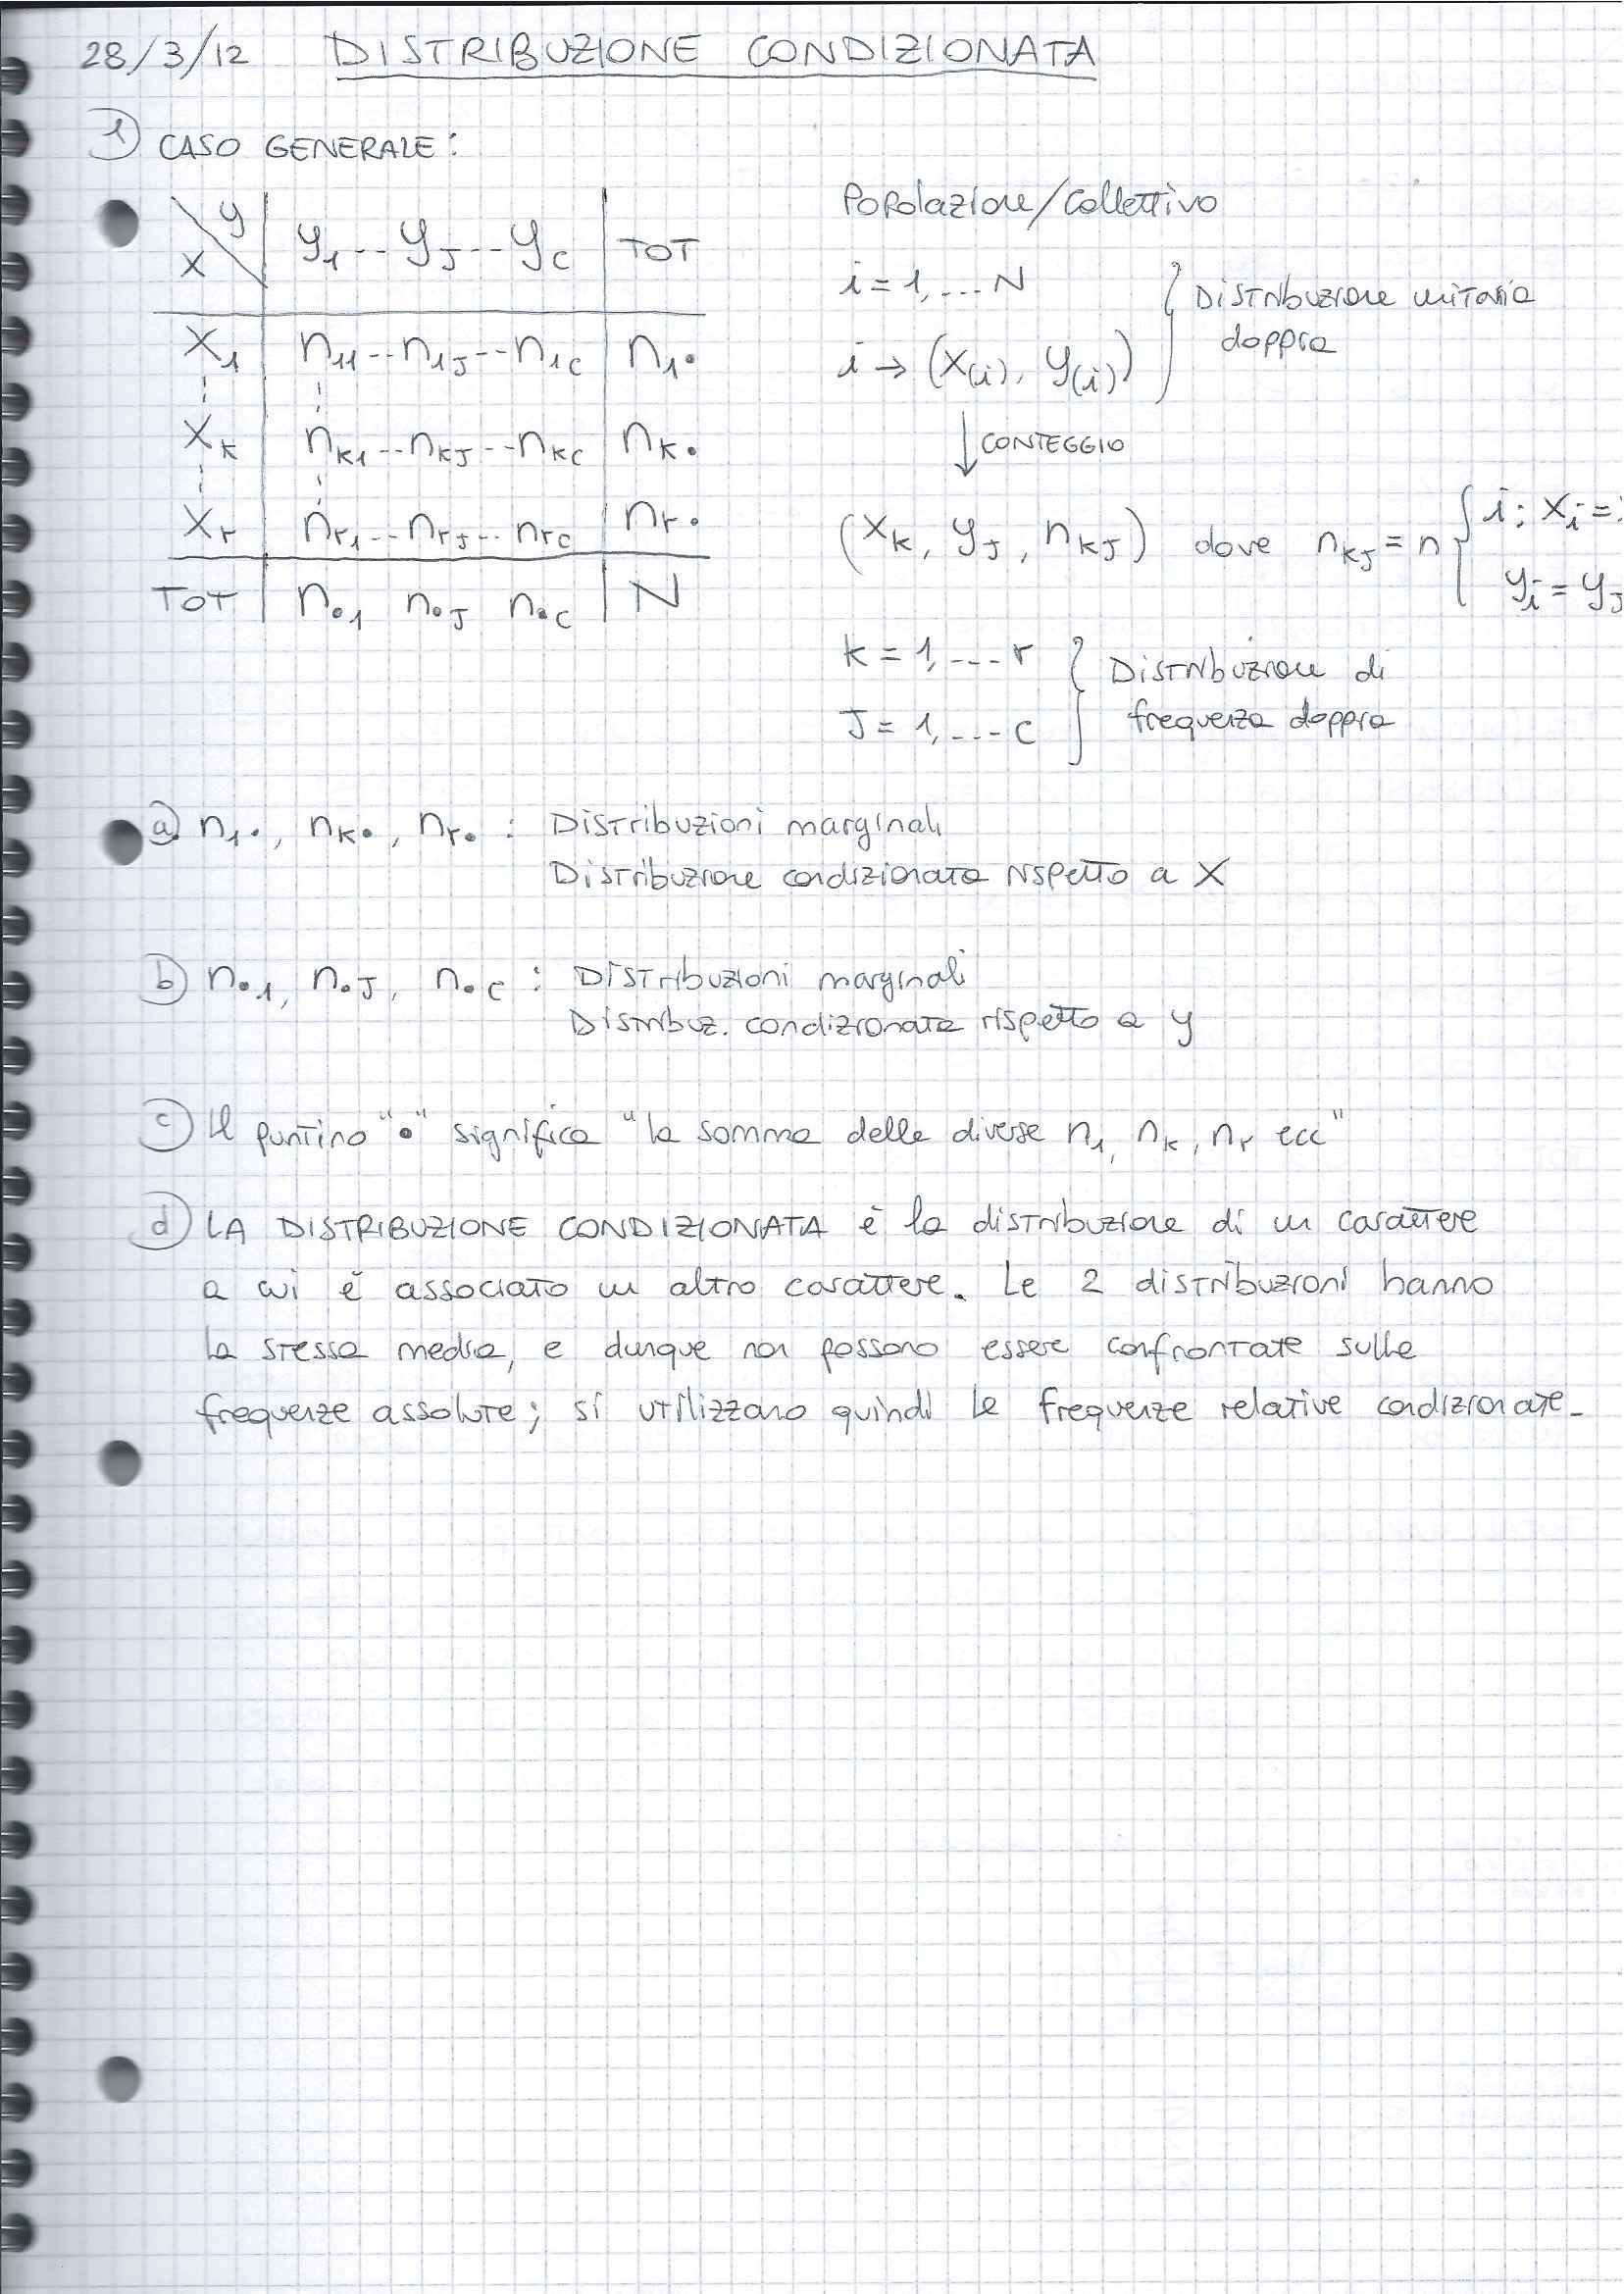 28/3/12 DISTRIBUZIONE CONDIZIONATA
1) CASO GENERALE:
X \ y | y1 --- yJ --- yc | TOT
X1 | n11 -- n1J -- n1c | n1•
Xk | nk1 -- nkJ -- nkc | nk•
Xr | nr1 -- nrJ -- nrc | nr•
TOT | n•1 n•J n•c | N
Popolazione/Collettivo
i = 1, ... N
i → (X(i), y(i))
} Distribuzione unitaria
doppia
↓ CONTEGGIO
(Xk, yJ, nkJ) dove nkJ = n { i : Xi =
yi = yJ
k = 1, ... r
J = 1, ... c
} Distribuzione di
frequenza doppia
a) n1•, nk•, nr• : Distribuzioni marginali
Distribuzione condizionata rispetto a X
b) n•1, n•J, n•c : Distribuzioni marginali
Distribuz. condizionata rispetto a y
c) Il puntino "•" significa "la somma delle diverse n1, nk, nr ecc"
d) LA DISTRIBUZIONE CONDIZIONATA è la distribuzione di un carattere
a cui è associato un altro carattere. Le 2 distribuzioni hanno
la stessa media, e dunque non possono essere confrontate sulle
frequenze assolute; si utilizzano quindi le frequenze relative condizionate.